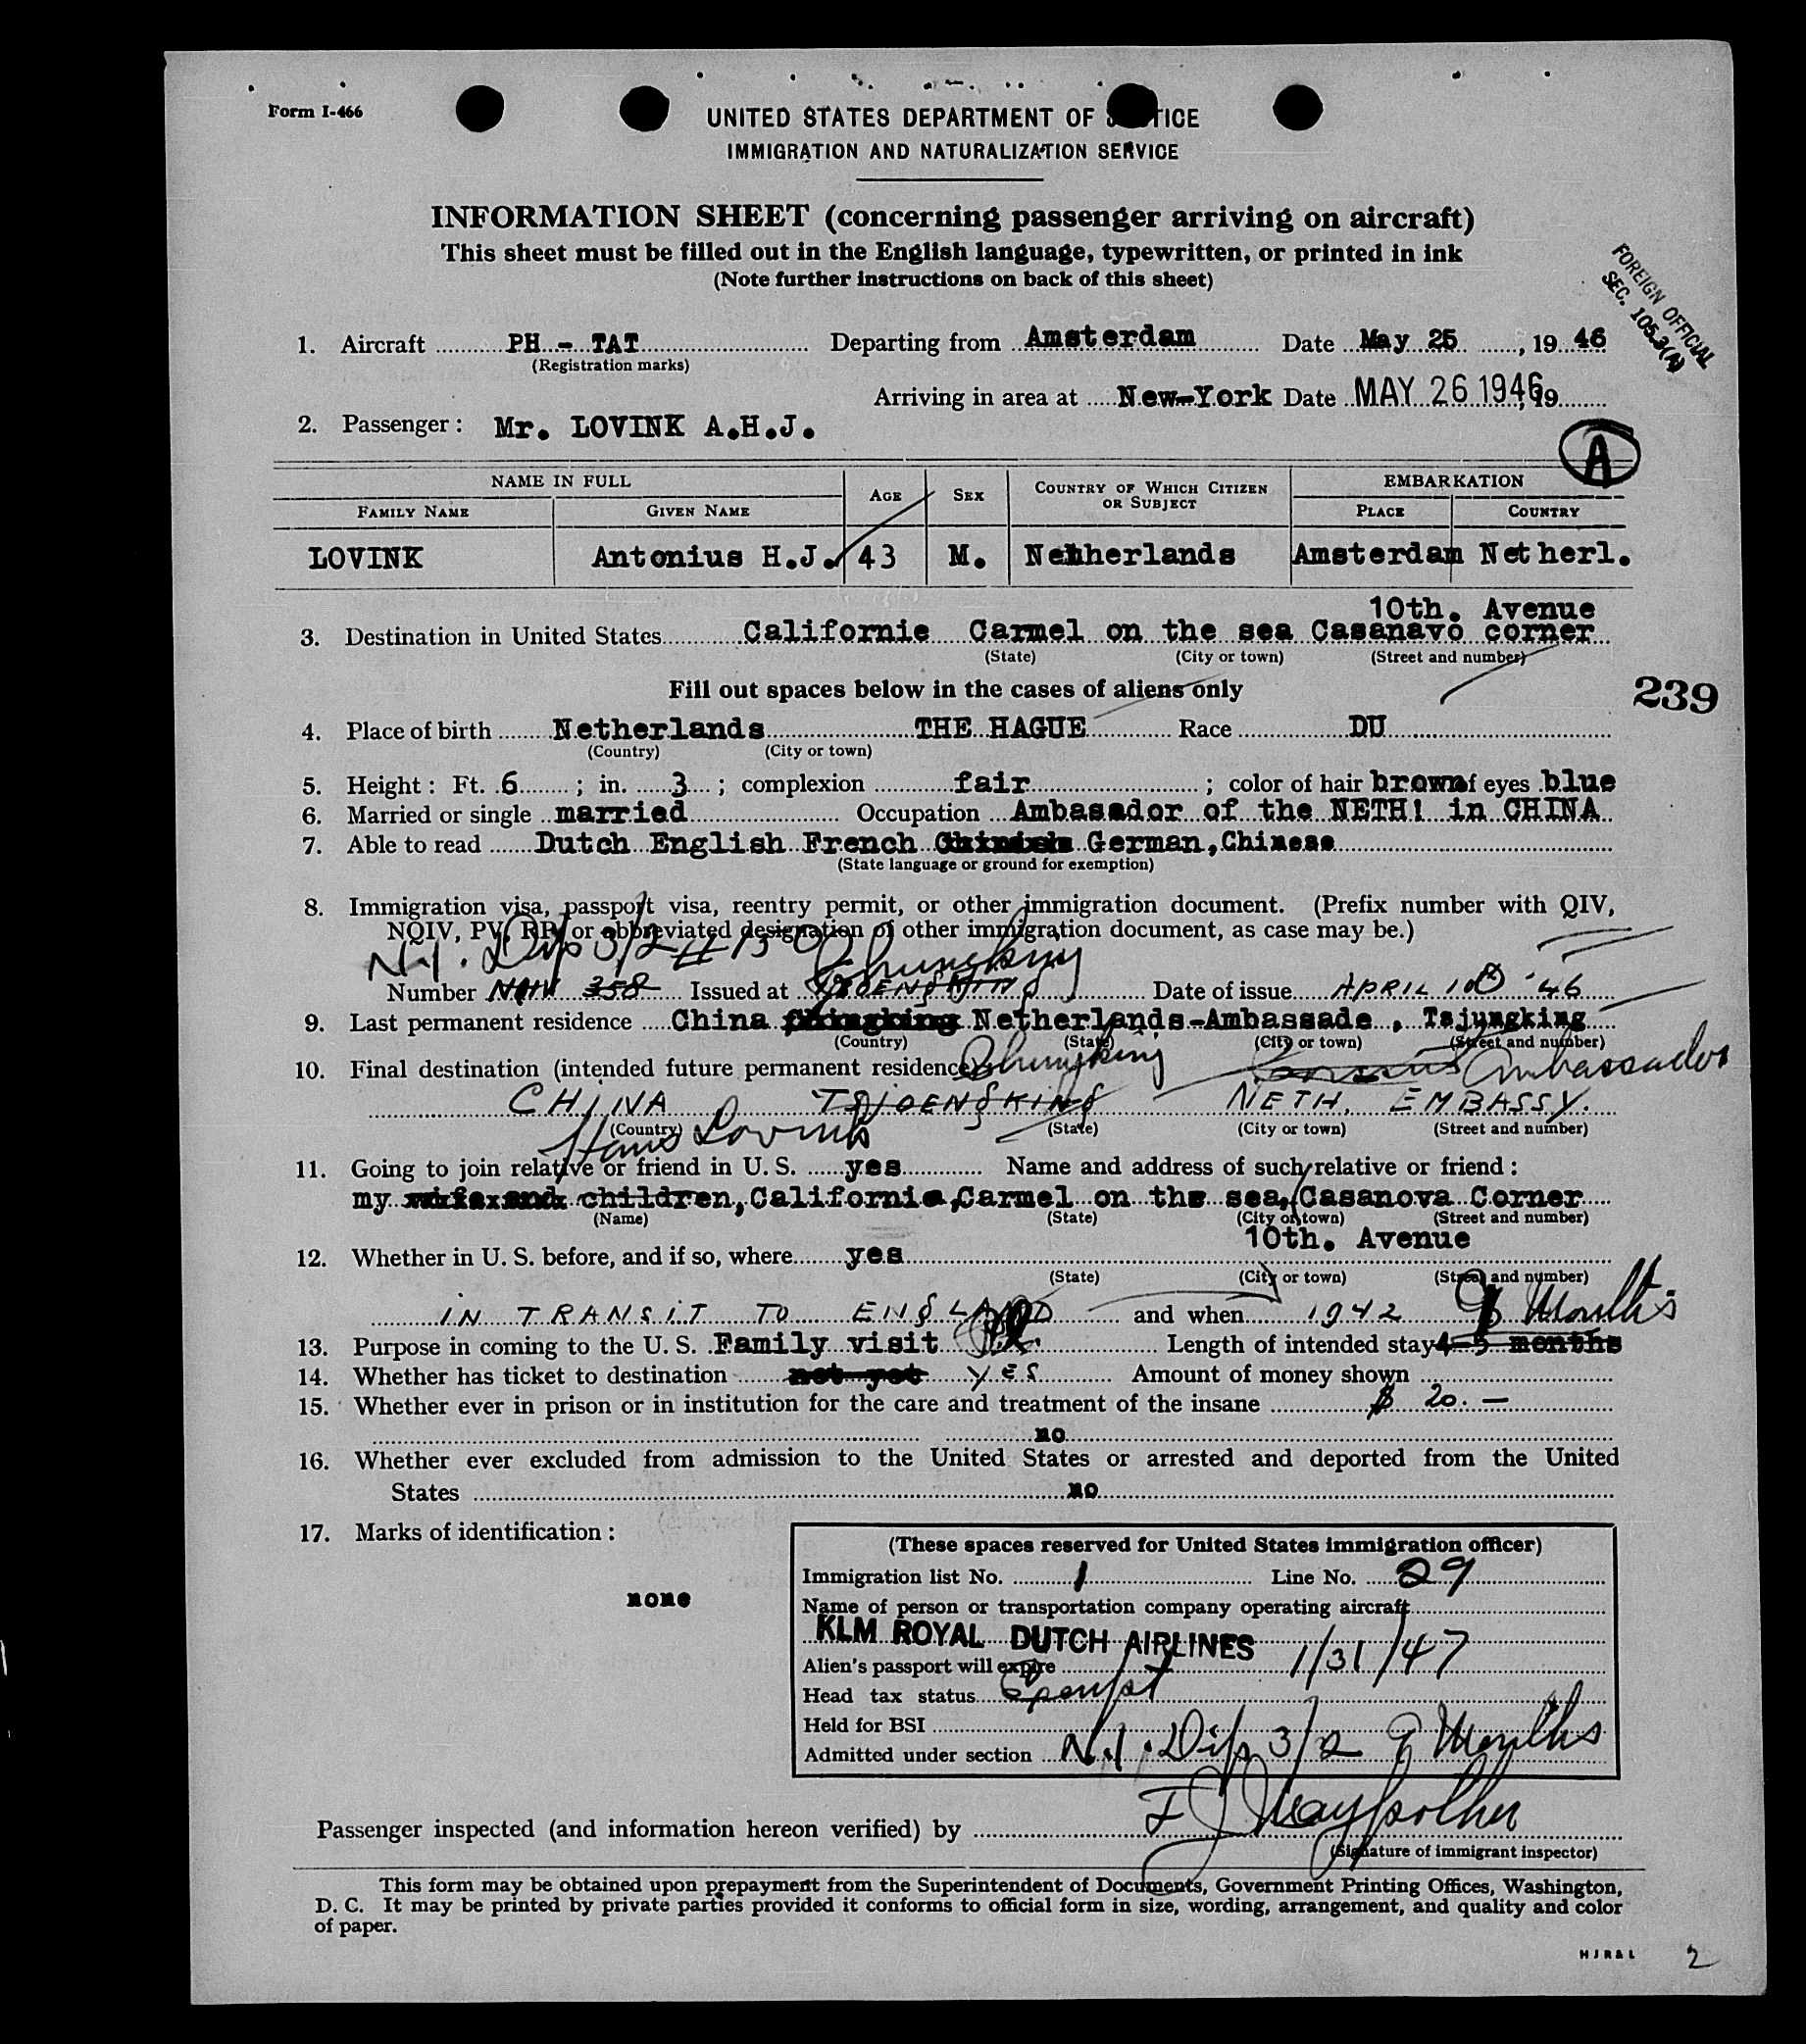 Form I-466
UNITED STATES DEPARTMENT OF JUSTICE
IMMIGRATION AND NATURALIZATION SERVICE
INFORMATION SHEET (concerning passenger arriving on aircraft)
This sheet must be filled out in the English language, typewritten, or printed in ink
(Note further instructions on back of this sheet)
FOREIGN OFFICIAL
SEC. 105.3(A)
1. Aircraft PH - TAT Departing from Amsterdam Date May 25, 19 46
(Registration marks)
Arriving in area at New-York Date MAY 26 1946, 19
2. Passenger: Mr. LOVINK A.H.J.
A
NAME IN FULL AGE SEX COUNTRY OF WHICH CITIZEN OR SUBJECT EMBARKATION
FAMILY NAME GIVEN NAME PLACE COUNTRY
LOVINK Antonius H.J. 43 M. Netherlands Amsterdam Netherl.
10th. Avenue
3. Destination in United States Californie Carmel on the sea Casanavo corner
(State) (City or town) (Street and number)
Fill out spaces below in the cases of aliens only
239
4. Place of birth Netherlands THE HAGUE Race DU
(Country) (City or town)
5. Height: Ft. 6; in. 3; complexion fair; color of hair brown of eyes blue
6. Married or single married Occupation Ambasador of the NETH! in CHINA
7. Able to read Dutch English French German, Chinese
(State language or ground for exemption)
8. Immigration visa, passport visa, reentry permit, or other immigration document. (Prefix number with QIV,
NQIV, PV, RP, or abbreviated designation of other immigration document, as case may be.)
N.I. Dip 3/2 # 1500 Chungking
Number 358 Issued at TSJOENGKING Date of issue APRIL 10 '46
9. Last permanent residence China Netherlands-Ambassade, Tsjungking
(Country) (State) (City or town) (Street and number)
10. Final destination (intended future permanent residence) Chungking Ambassador
CHINA TSJOENGKING NETH. EMBASSY.
(Country) (State) (City or town) (Street and number)
Hans Lovink
11. Going to join relative or friend in U. S. yes Name and address of such relative or friend:
my wife and children, California, Carmel on the sea, Casanova Corner
(Name) (State) (City or town) (Street and number)
10th. Avenue
12. Whether in U. S. before, and if so, where yes
(State) (City or town) (Street and number)
IN TRANSIT TO ENGLAND and when 1942 9 Months
13. Purpose in coming to the U. S. Family visit Length of intended stay 4-5 months
14. Whether has ticket to destination not yet YES Amount of money shown
15. Whether ever in prison or in institution for the care and treatment of the insane $ 20.—
no
16. Whether ever excluded from admission to the United States or arrested and deported from the United
States no
17. Marks of identification:
none
(These spaces reserved for United States immigration officer)
Immigration list No. 1 Line No. 29
Name of person or transportation company operating aircraft
KLM ROYAL DUTCH AIRLINES
Alien's passport will expire 1/31/47
Head tax status Exempt
Held for BSI
Admitted under section N.I. Dip 3/2 9 Months
Passenger inspected (and information hereon verified) by
(Signature of immigrant inspector)
This form may be obtained upon prepayment from the Superintendent of Documents, Government Printing Offices, Washington,
D. C. It may be printed by private parties provided it conforms to official form in size, wording, arrangement, and quality and color
of paper.
HJR&L 2